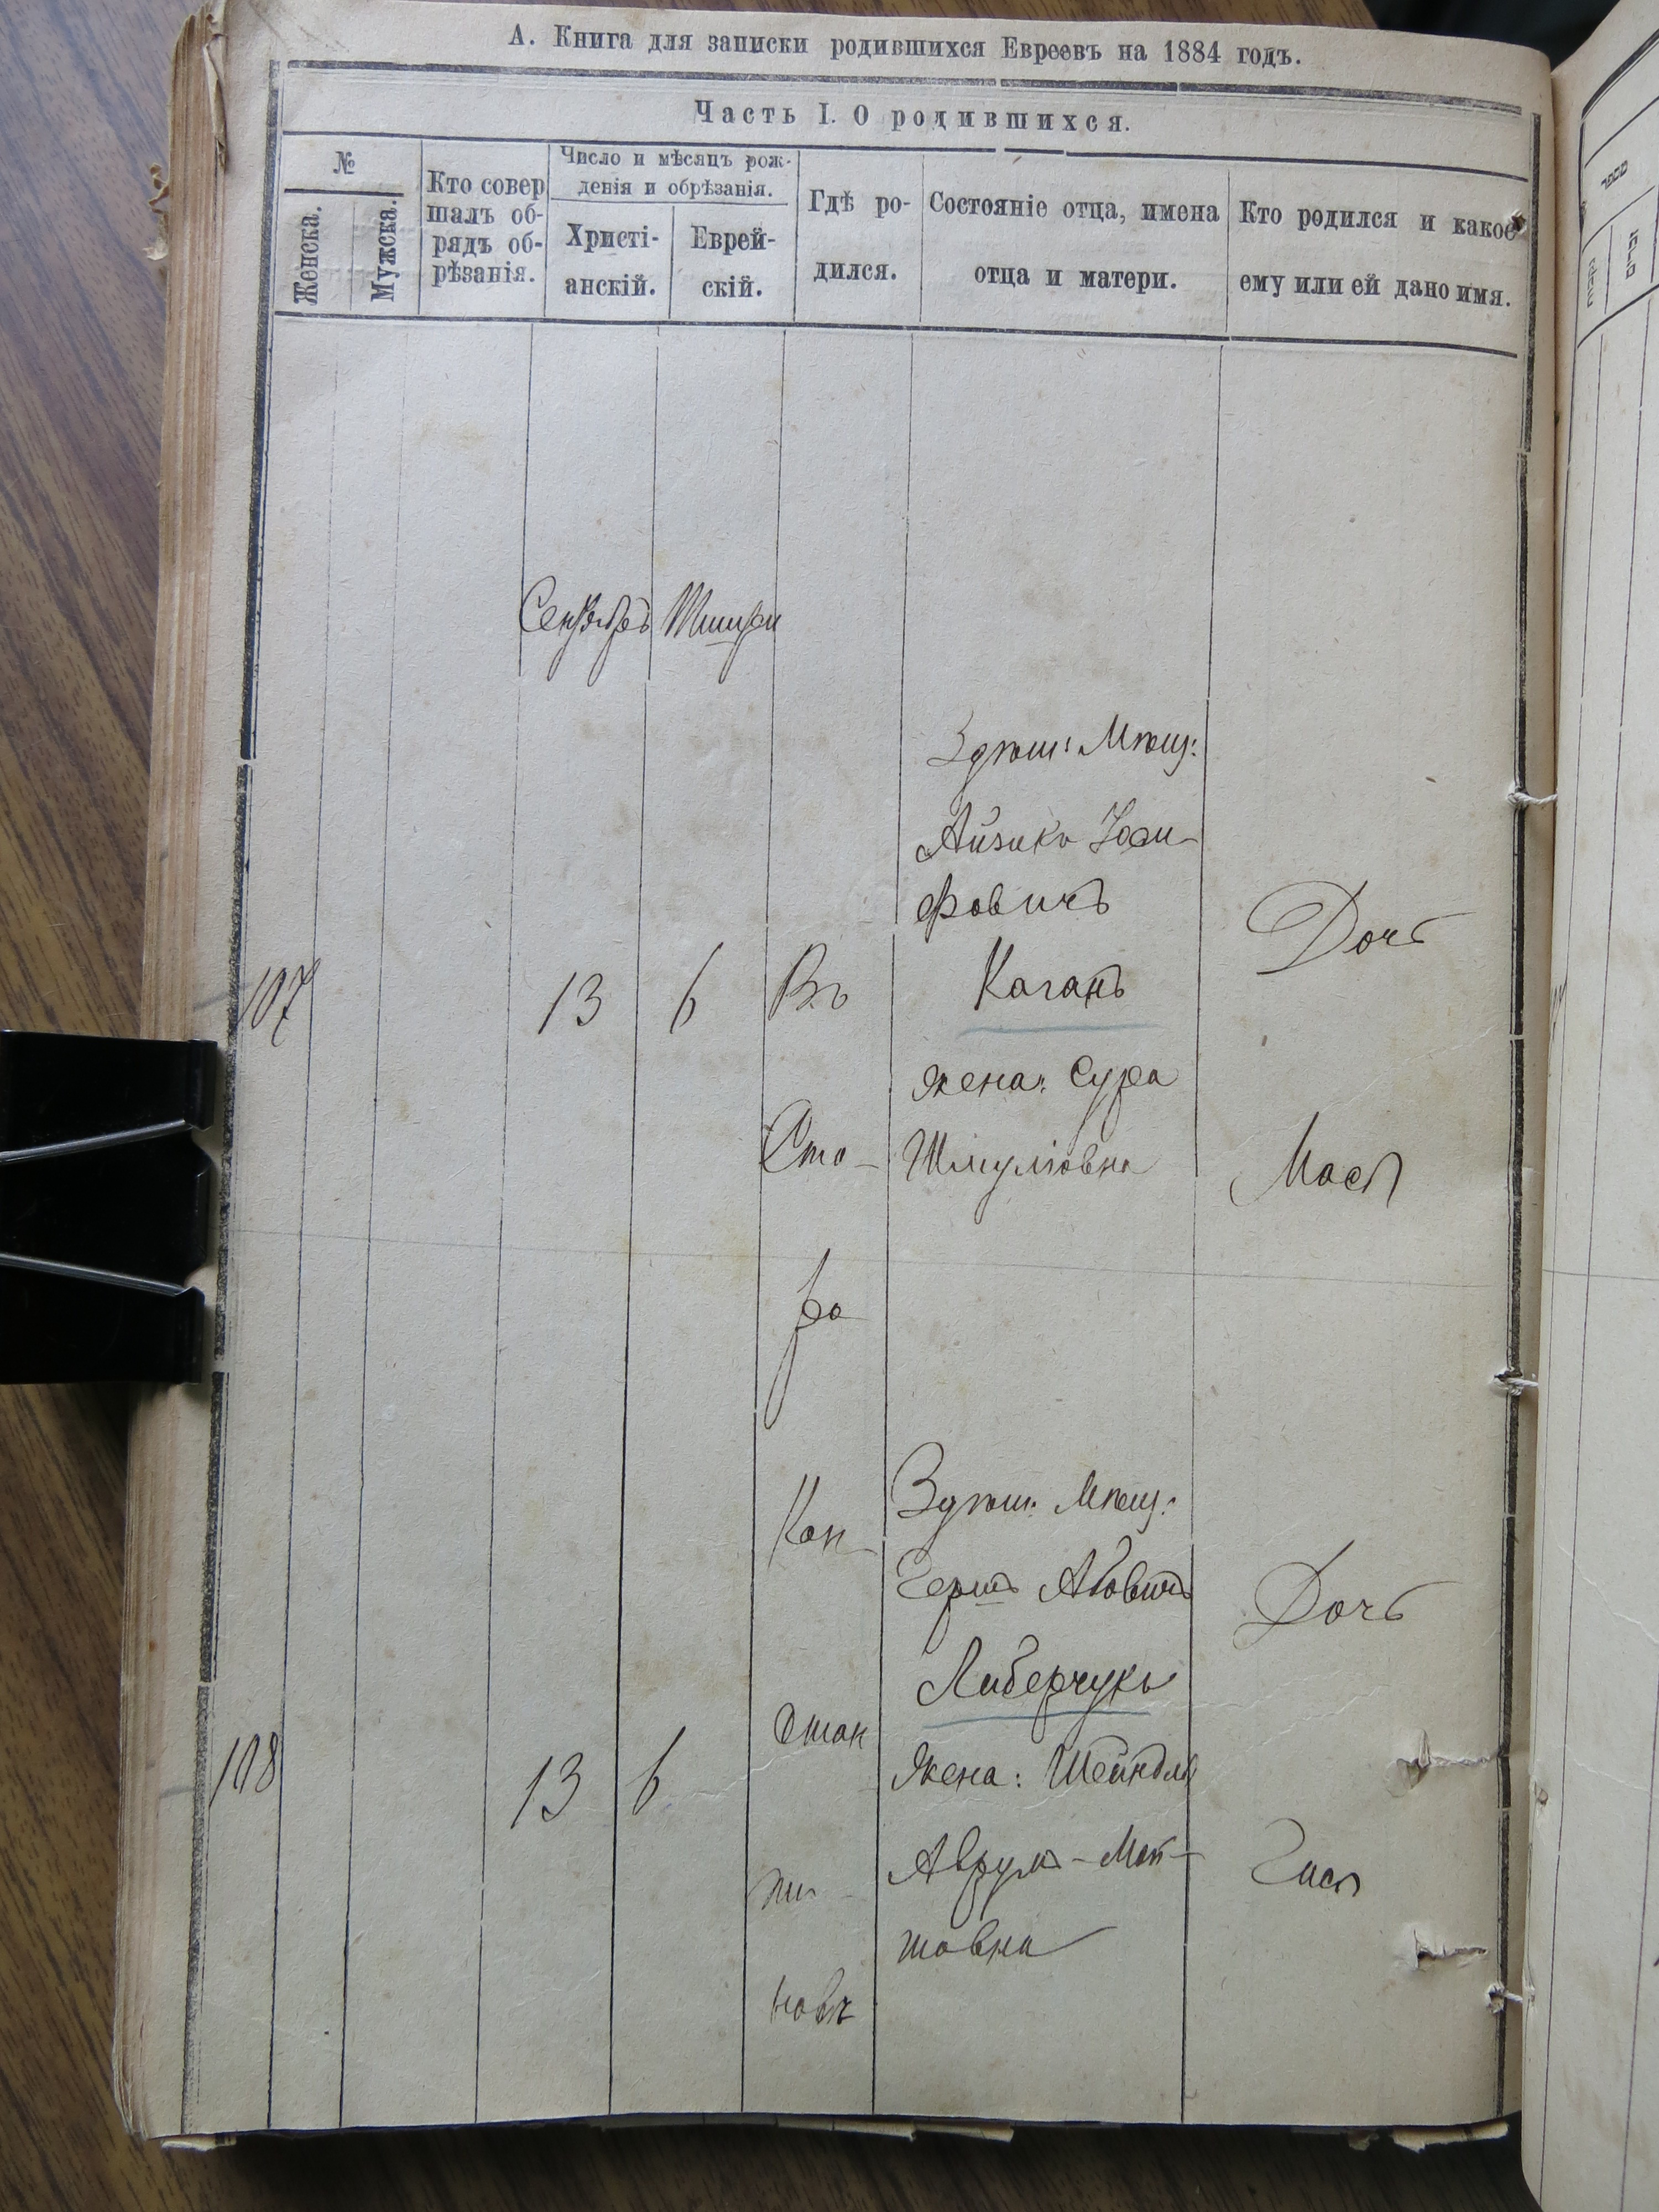 А. Книга для записки родившихся Евреевъ на 1884 годъ.
Часть I. О родившихся.
№
Женска.
Мужска.
Кто совер
шалъ об-
рядъ об-
рѣзанія.
Число и мѣсяцъ рож-
денія и обрѣзанія.
Христі-
анскій.
Еврей-
скій.
Гдѣ ро-
дился.
Состояніе отца, имена
отца и матери.
Кто родился и какое
ему или ей дано имя.
Сентябрь Тишри
107
13
6
Въ
Ста-
ро
Кон-
стан
ти-
новѣ
Здѣш: Мѣщ:
Айзикъ Іоси-
фовичъ
Каганъ
жена: Сура
Шмуліовна
Дочь
Мася
108
13
6
Здѣш: Мѣщ:
Гершъ Абовичъ
Либерчукъ
Жена: Шейндля
Аврумъ-
товна
Дочь
מספר